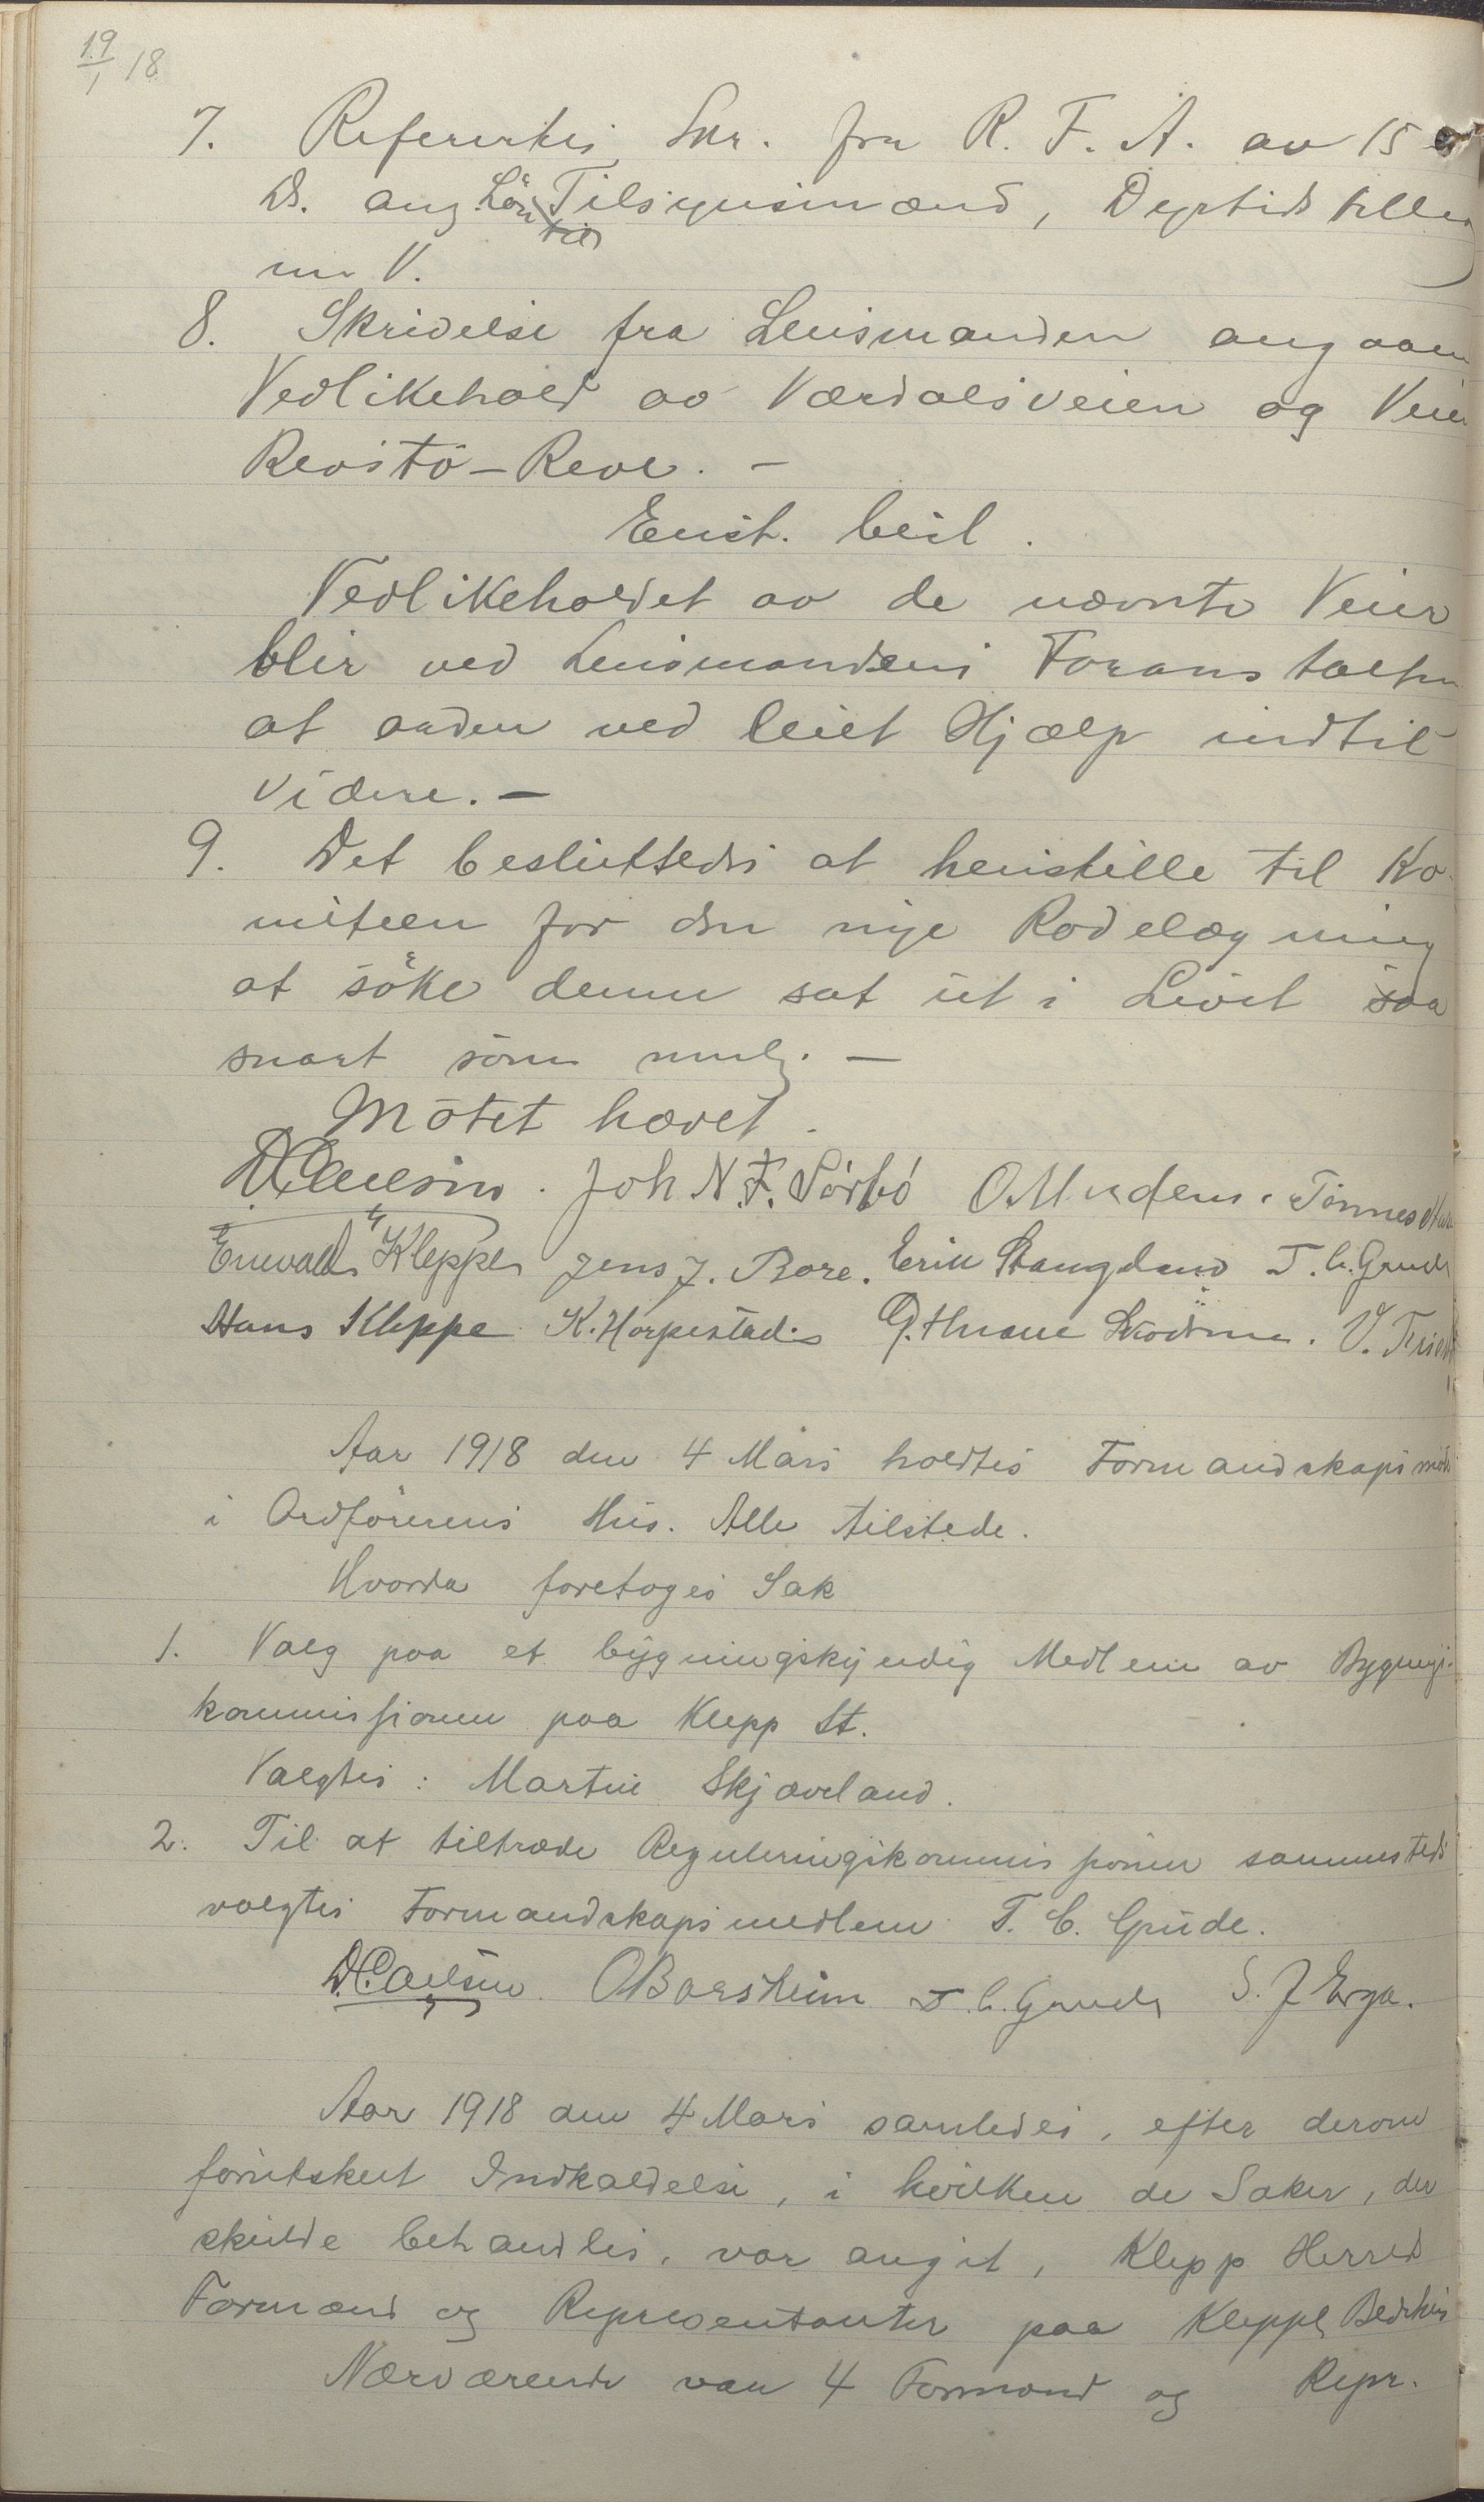 19/1 18
7. Refertes Skr. fra R. F. A. av 15
ds. ang Løn til Tilsynsmænd, Dyrtidstillæg
m. V.
8. Skrivelse fra Lensmanden angaaen
Vedlikehold av Værdalsveien og Veien
Revstö-Reve. -
Enst. besl.
Vedlikeholdet av de nævnte Veier
blir ved Lensmandens Foranstaltn
at anden ved leiet Hjælp indtil
videre. -
9. Det besluttedes at henstille til Ko-
miteen for den nye Rodelægning
at söke denne sat ut i Livet saa
snart som mulig. -
Mötet hævet.
D Carlsen. Joh N. F. Sörbö O. Tönnes
Enevald Kleppe Jens J. Bore. Erik Stangeland T. C. Grude
Hans Kleppe K. Horpestad V. Friestad
Aar 1918 den 4 Mars holdtes Formandskapsmöte
i Ordförerens Hus. Alle tilstede.
Hvorda foretoges Sak
1. Valg paa et bygningskyndig Medlem av Bygnings-
kommissionen paa Klepp St.
Valgtes: Martin Skjæveland.
2. Til at tiltræde Reguleringskommissionen sammesteds
valgtes Formandskapsmedlem T. C. Grude.
D. Carlsen. O Borsheim T. C. Grude S. J Erga.
Aar 1918 den 4 Mars samledes, efter derom
forutskeet Indkaldelse, i hvilken de Saker, der
skulde behandles, var angit, Klepp Herred
Formænd og Repræsentanter paa Kleppe Bedehus
Nærværende var 4 Formænd og Repr.